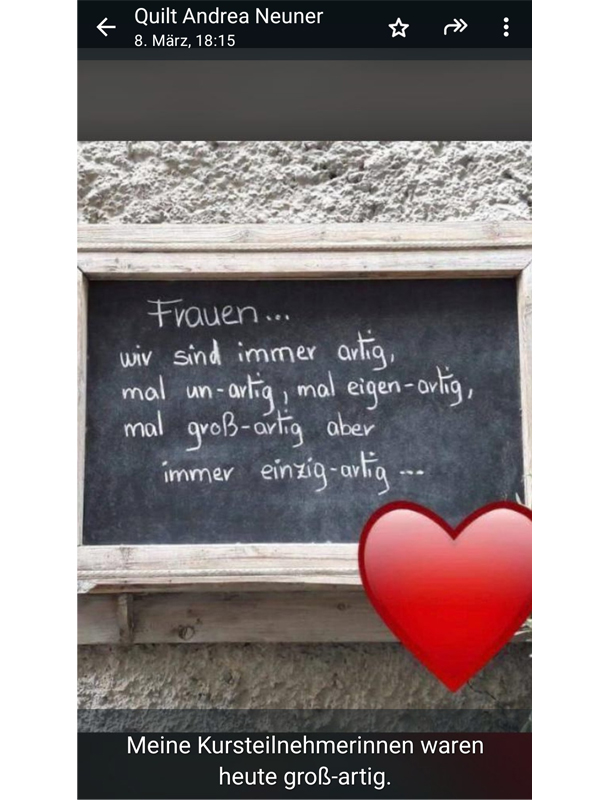 Quilt Andrea Neuner
8. März, 18:15
Frauen...
wir sind immer artig,
mal un-artig, mal eigen-artig,
mal groß-artig aber
immer einzig-artig ...
Meine Kursteilnehmerinnen waren
heute groß-artig.